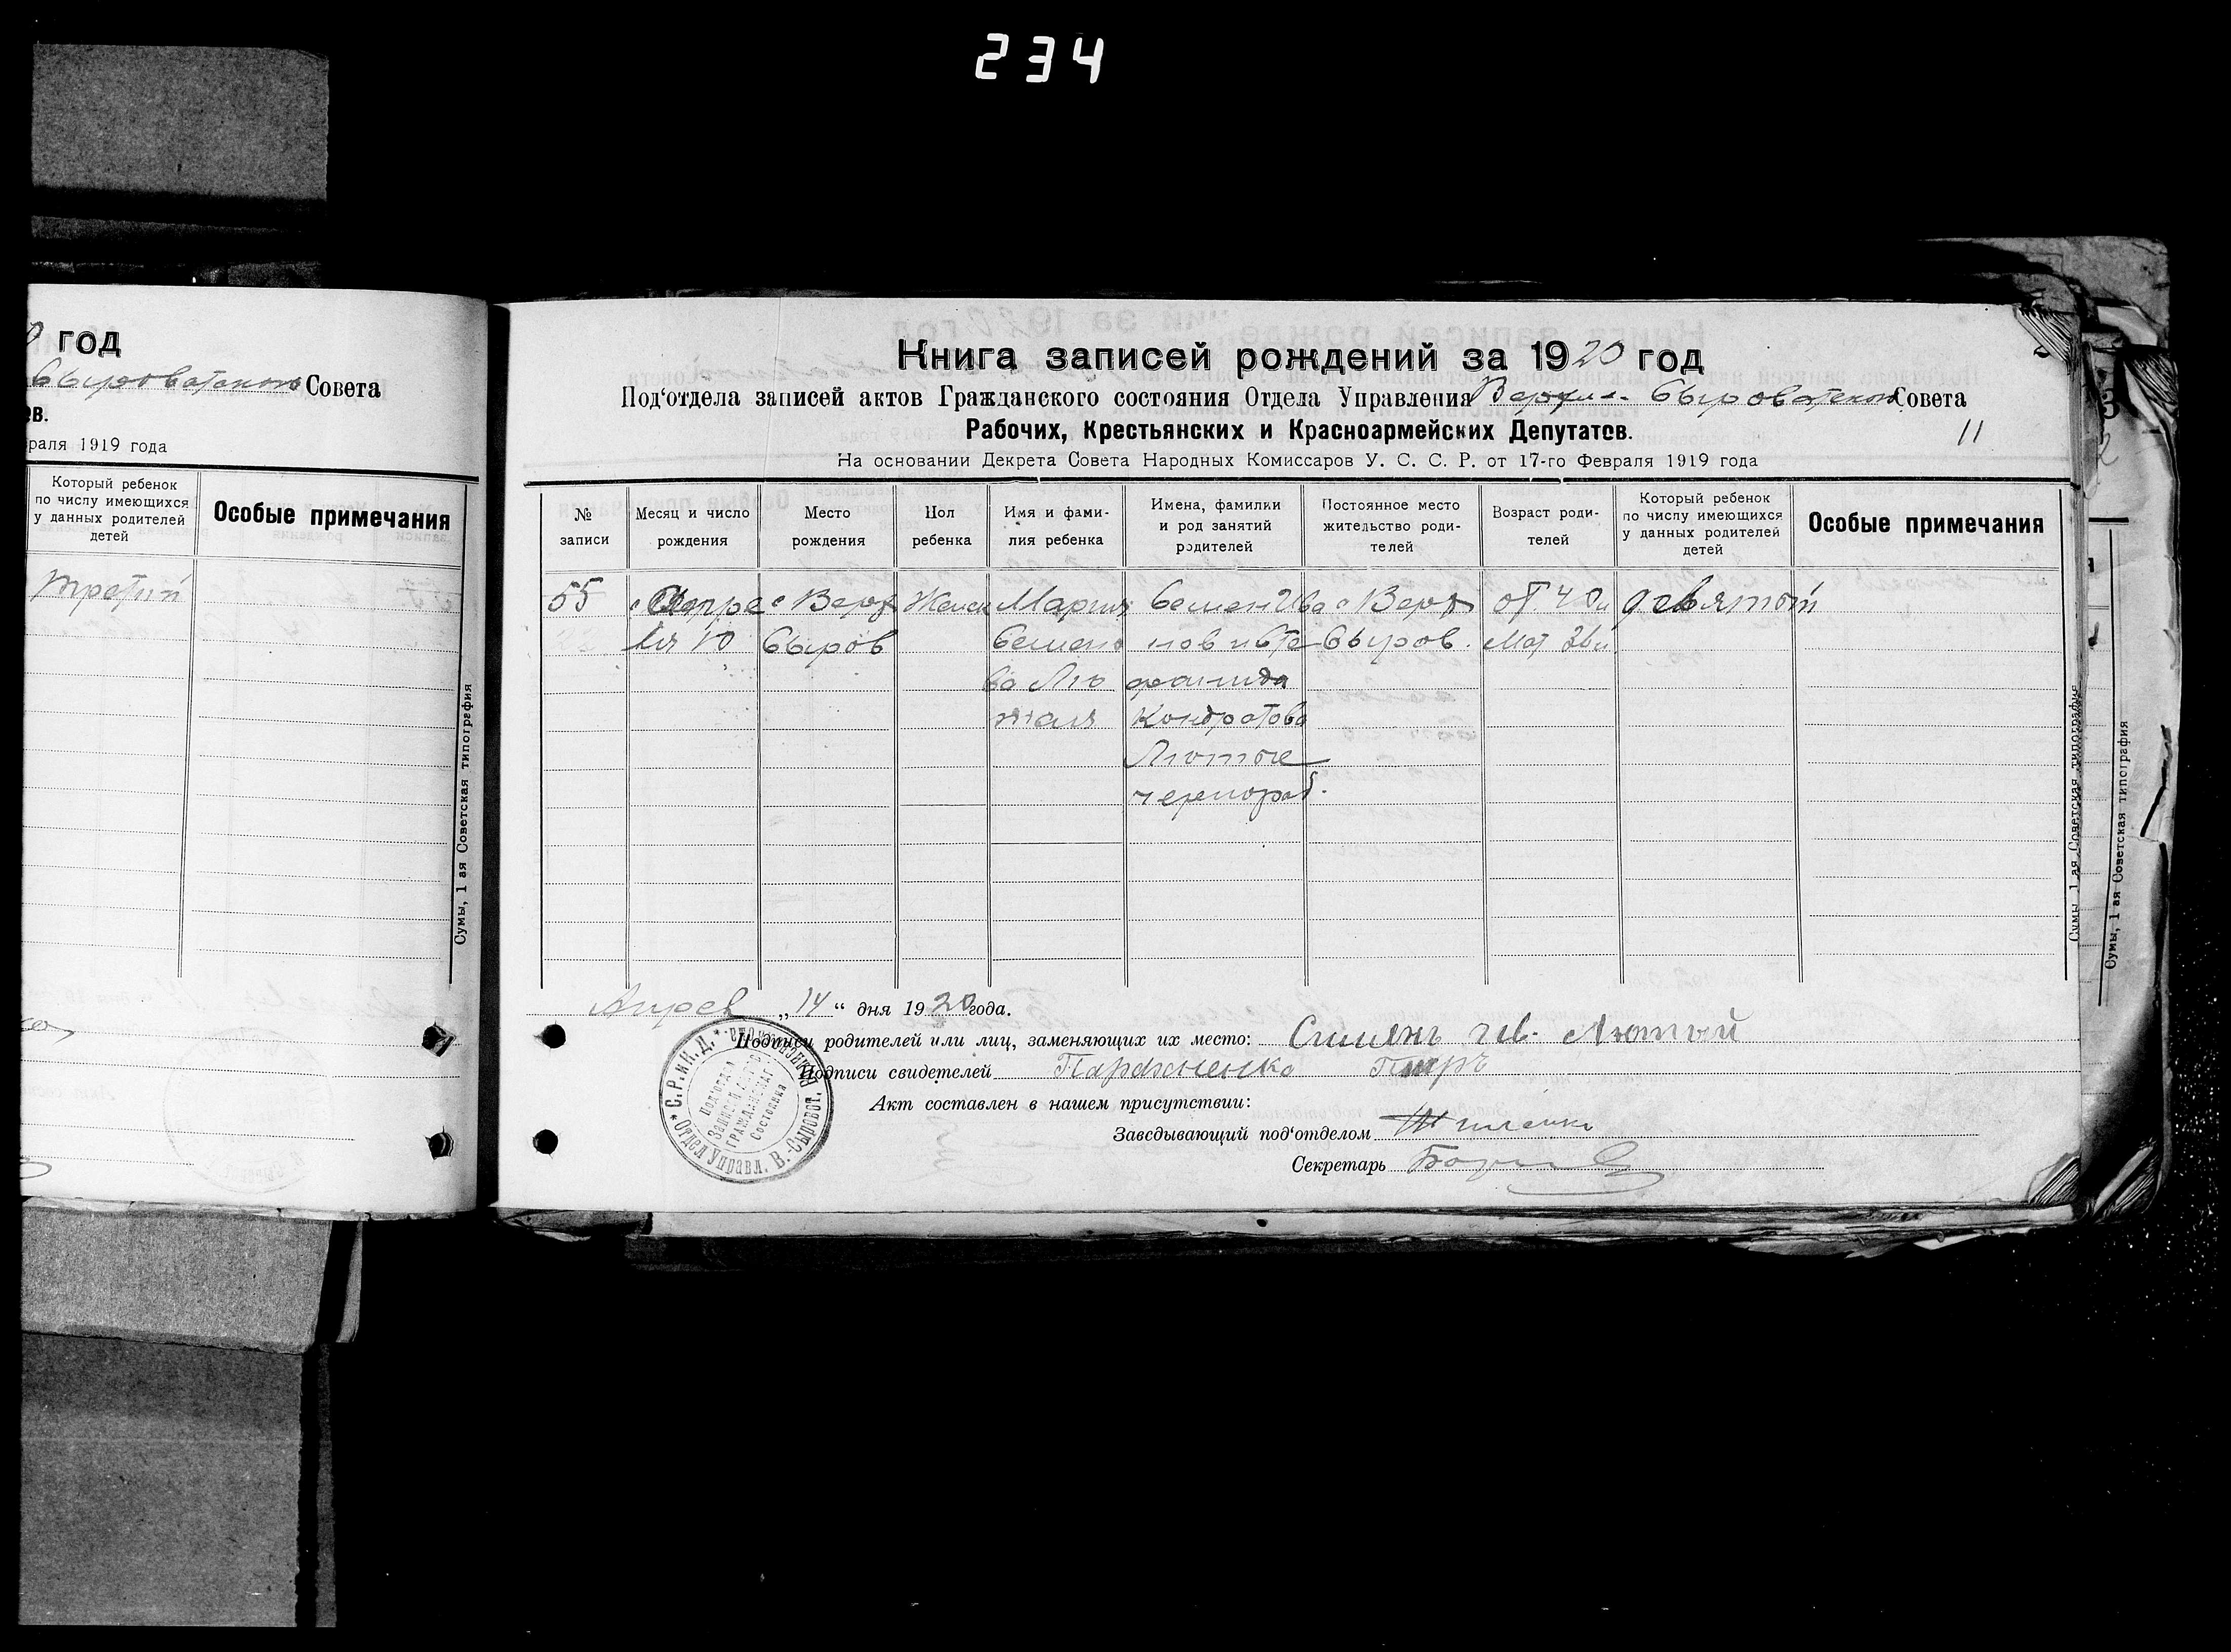 234
год
Сыроватского Совета
раля 1919 года
Который ребенок
по числу имеющихся
у данных родителей
детей
Особые примечания
третий
Сумы, 1 ая Советская типография
Книга записей рождений за 1920 год
Под‘отдела записей актов Гражданского состояния Отдела Управления Верхне-Сыроватского Совета
Рабочих, Крестьянских и Красноармейских Депутатов.
11
На основании Декрета Совета Народных Комиссаров У. С. С. Р. от 17-го Февраля 1919 года
№
записи
Месяц и число
рождения
Место
рождения
Пол
ребенка
Имя и фами-
лия ребенка
Имена, фамилии
и род занятий
родителей
Постоянное место
жительство роди-
телей
Возраст роди-
телей
Который ребенок
по числу имеющихся
у данных родителей
детей
Особые примечания
55
Апре
ля 10
с Верх
Сыров
Женск
Мария
Семено
ва Лю
тая
Семен Ива
нов и Сте
фанида
Кондратова
Лютые
чернораб.
с Верх
Сыров.
от. 40
Мат
девятый
Апрел „14“ дня 1920 года.
Подписи родителей или лиц, заменяющих их место: Лютый
Подписи свидетелей Пархоменко
Акт составлен в нашем присутствии:
Заведывающий под‘отделом
Секретарь
С.Р.и К.Д. Отдел Управл. В.-Сыроват.
Подотдел
Записей Актов
Гражданскаг
Состояния
Сумы, 1 ая Советская типография
Сумы, 1 ая Советская типография